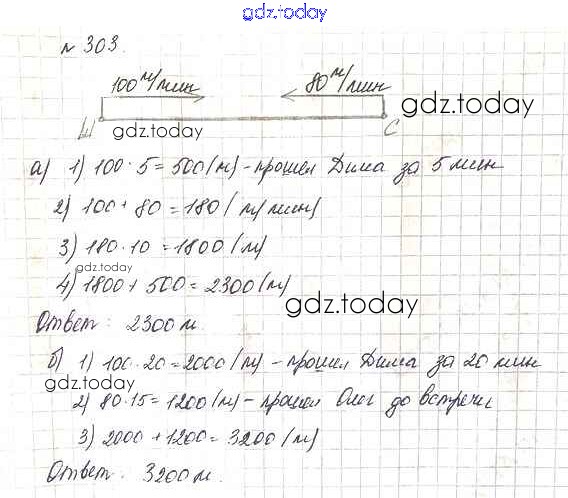 gdz.today
№ 303.
100 м/мин 80 м/мин
gdz.today
Ш gdz.today С
а) 1) 100 · 5 = 500 (м) - прошел Дима за 5 мин
2) 100 + 80 = 180 (м/мин)
3) 180 · 10 = 1800 (м)
gdz.today
4) 1800 + 500 = 2300 (м)
gdz.today
Ответ: 2300 м.
б) 1) 100 · 20 = 2000 (м) - прошел Дима за 20 мин
gdz.today
2) 80 · 15 = 1200 (м) - прошел Олег до встречи
3) 2000 + 1200 = 3200 (м)
Ответ: 3200 м.